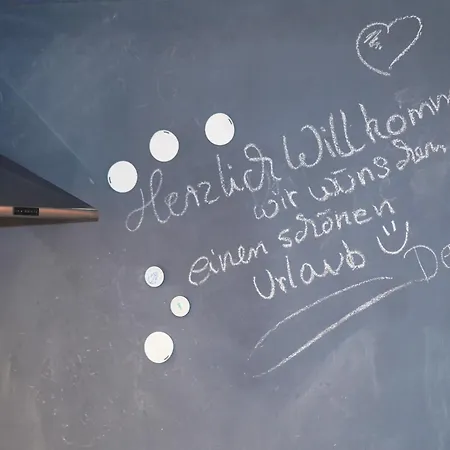 Herzlich Willkomm
wir wünschen,
einen schönen
Urlaub
De